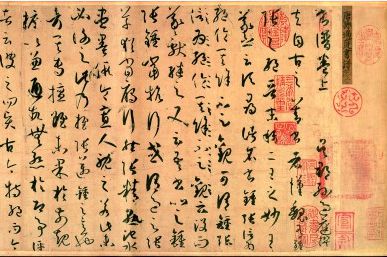 書譜卷上
吳郡孫過庭撰
夫自古之善書者漢魏有鍾
張之絕晉末稱二王之妙王
羲之云頃尋諸名書鍾張信
為絕倫其餘不足觀可謂鍾張
云沒而
羲獻繼之又云吾書比之鍾
張鍾當抗行或謂過之張
草猶當雁行然張精熟池水
盡墨假令寡人耽之若此未
必謝之此乃推張邁鍾之意也
考其專擅雖未果於前規
摭以兼通故無慚於即事評
者云彼之四賢古今特絕而今